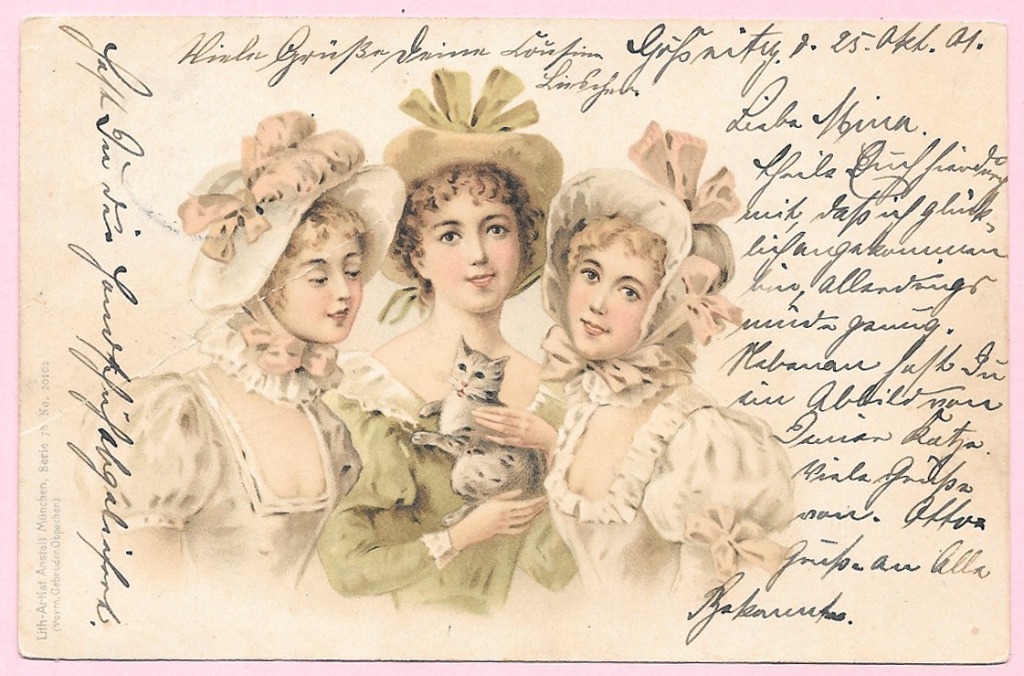 Viele Grüße Deine Cousine
Lieschen.
Gößnitz, d. 25. Okt. 01.
Liebe Mina.
theile Euch hierdurch
mit, daß ich glück-
lich angekommen
bin, allerdings
müde genug.
Nebenan hast Du
ein Abbild von
Deiner Katze.
Viele Grüße
von. Otto
Grüße an Alle
Bekannte.
Hast Du die Handschuh abgeliefert.
Lith.-Artist. Anstalt München, Serie 76 No. 20202
(vorm. Gebrüder Obpacher)